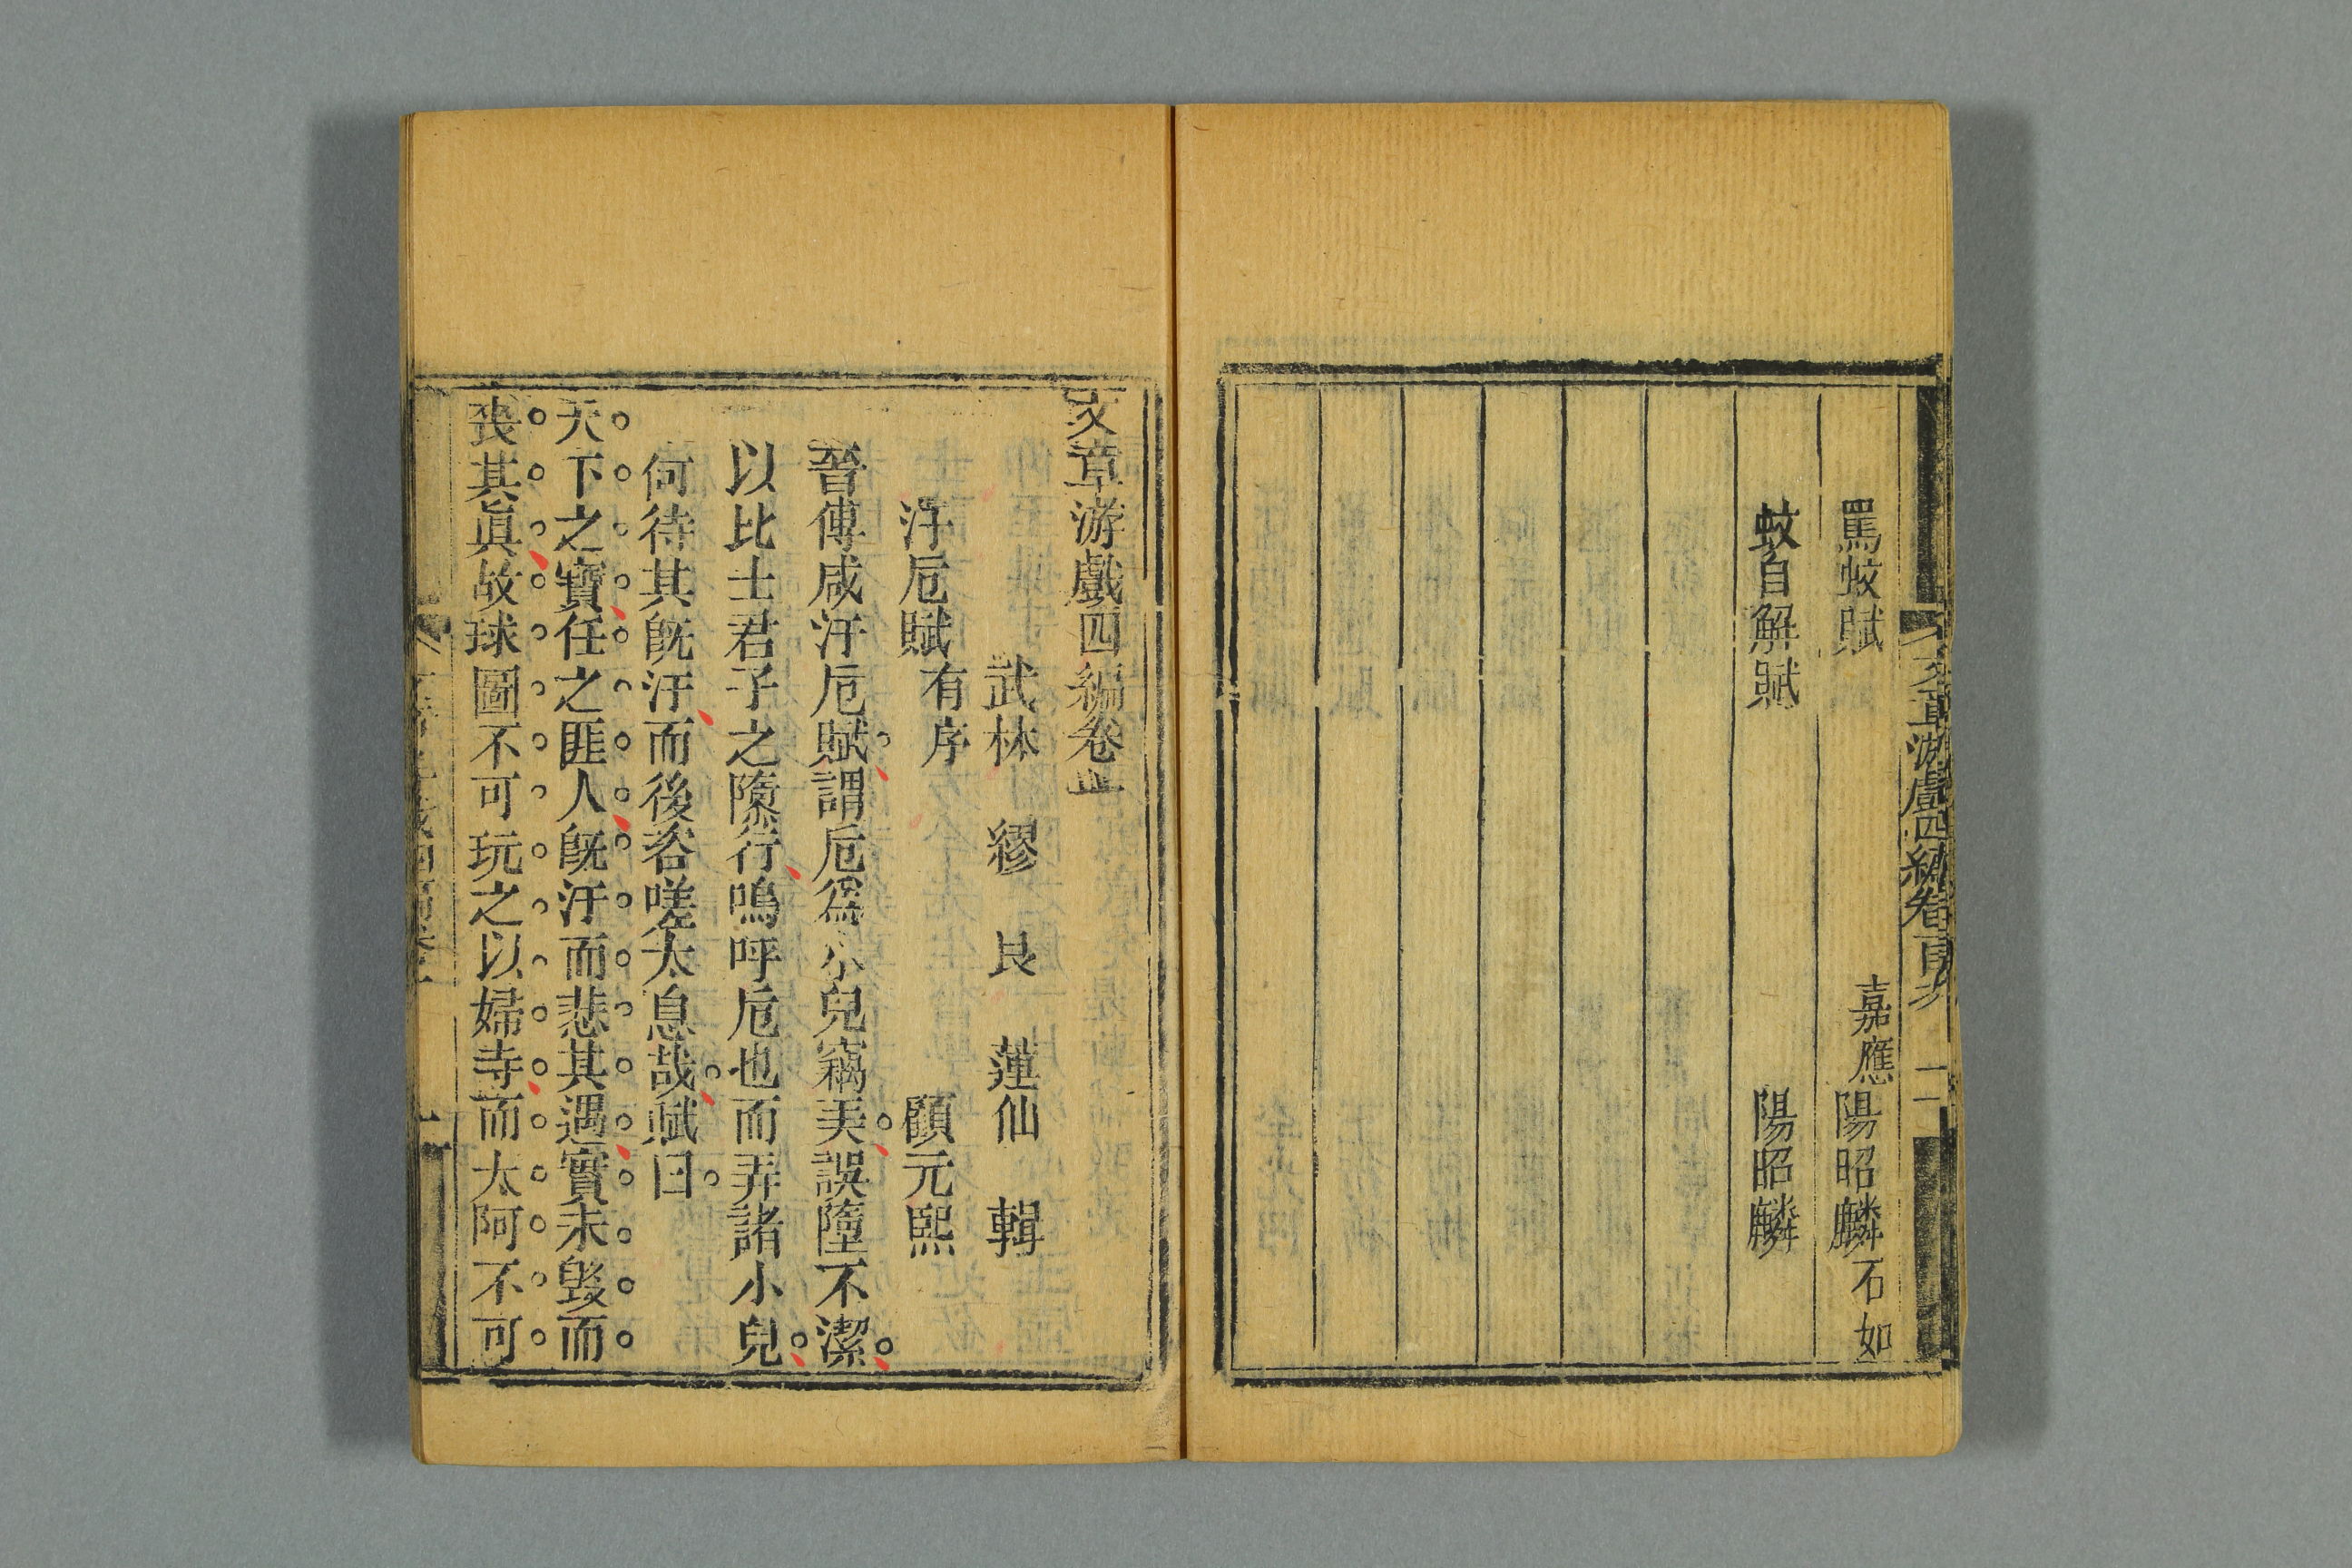 罵蚊賦 嘉應陽昭麟石如
蚊自解賦 陽昭麟
文章游戲四編卷
武林 繆 艮 蓮仙 輯
汙巵賦有序 顧元熙
晉傅咸汙巵賦。謂巵爲小兒竊弄。誤墮不潔。
以比士君子之隳行嗚呼巵也而弄諸小兒。
何待其旣汙而後咨嗟太息哉。賦曰。
天下之寶任之匪人旣汙而悲其遇實未毀而
喪其眞故球圖不可玩之以婦寺而太阿不可